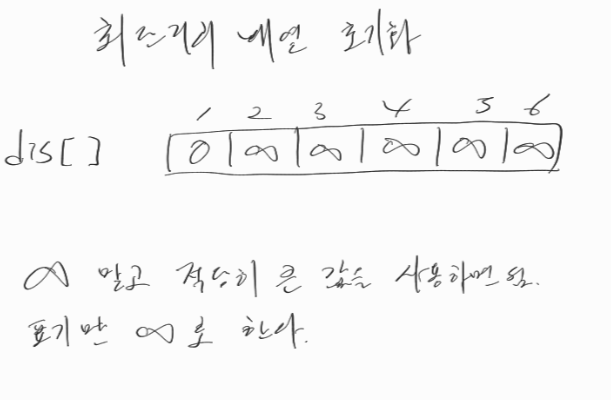 최단거리 배열 초기화
1 2 3 4 5 6
dis[] 0 ∞ ∞ ∞ ∞ ∞
∞ 말고 적당히 큰 값을 사용하면 됨.
표기만 ∞로 한다.